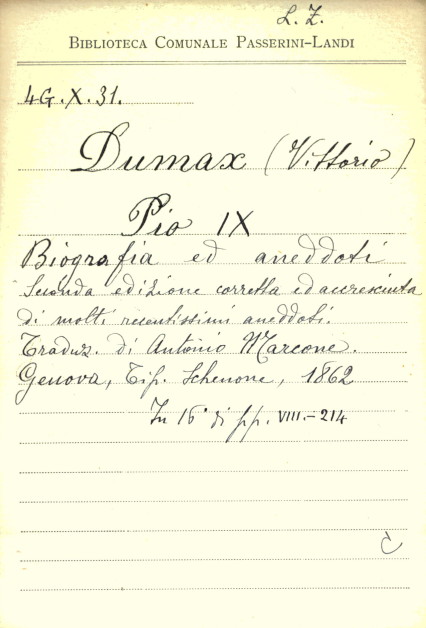 L. Z.
BIBLIOTECA COMUNALE PASSERINI-LANDI
4G.X.31.
Dumax (Vittorio)
Pio IX
Biografia ed aneddoti
Seconda edizione corretta ed accresciuta
di molti recentissimi aneddoti.
Traduz. di Antonio Marcone.
Genova, Tip. Schenone, 1862
In 16° di pp. VIII.-214
C